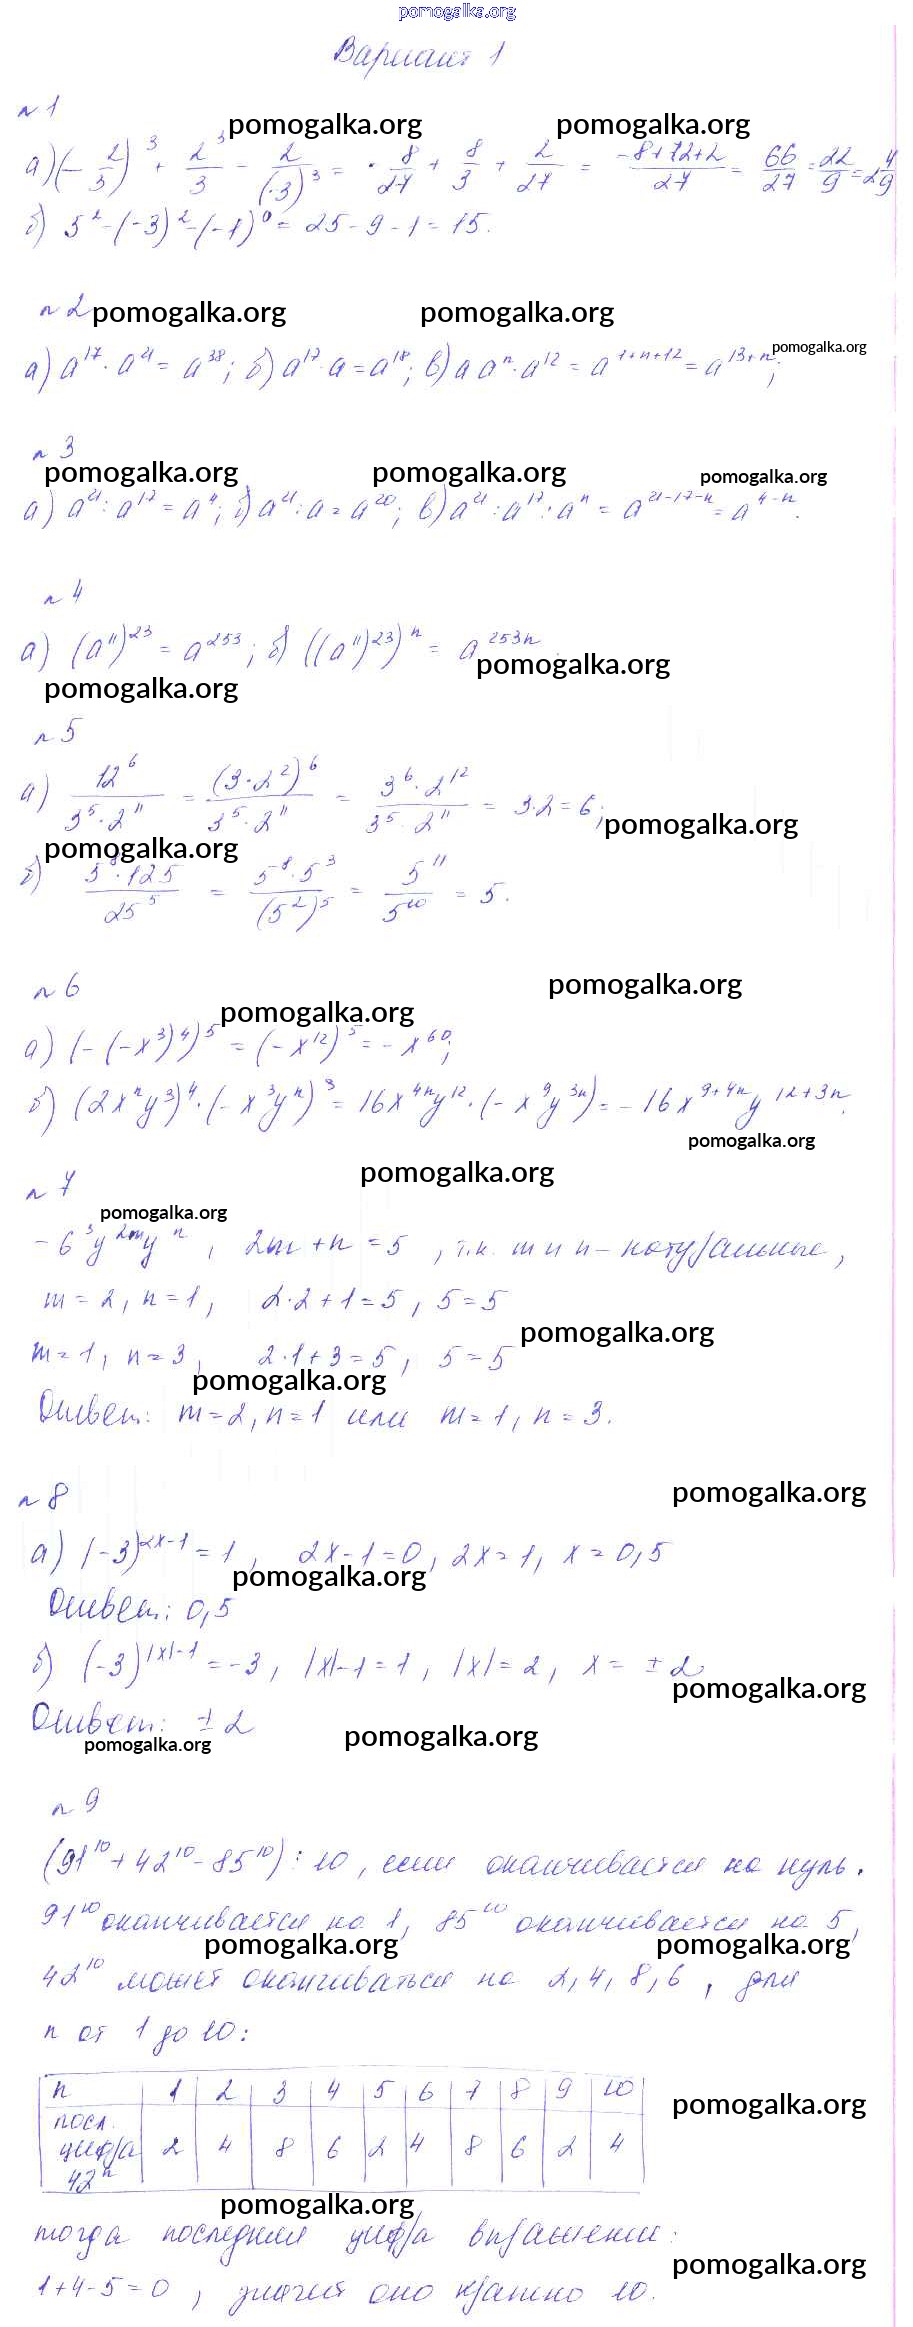 pomogalka.org
Вариант 1
n 1
pomogalka.org pomogalka.org
а) (-2/3)^3 + 2^3/3 - 2/(-3)^3 = -8/27 + 8/3 + 2/27 = (-8+72+2)/27 = 66/27 = 22/9 = 2 4/9
б) 5^2 - (-3)^2 - (-1)^0 = 25 - 9 - 1 = 15.
n 2 pomogalka.org pomogalka.org
pomogalka.org
а) a^17 · a^21 = a^38; б) a^17 · a = a^18; в) a a^n · a^12 = a^(1+n+12) = a^(13+n);
n 3
pomogalka.org pomogalka.org pomogalka.org
а) a^21 : a^17 = a^4; б) a^21 : a = a^20; в) a^21 : a^17 : a^n = a^(21-17-n) = a^(4-n).
n 4
а) (a^11)^23 = a^253; б) ((a^11)^23)^n = a^253n
pomogalka.org
pomogalka.org
n 5
а) 12^6/(3^5 · 2^11) = (3·2^2)^6/(3^5 · 2^11) = (3^6 · 2^12)/(3^5 · 2^11) = 3·2 = 6;
pomogalka.org
pomogalka.org
б) (5^8 · 125)/25^5 = (5^8 · 5^3)/(5^2)^5 = 5^11/5^10 = 5.
n 6
pomogalka.org
pomogalka.org
а) (-(-x^3)^4)^5 = (-x^12)^5 = -x^60;
б) (2x^n y^3)^4 · (-x^3 y^n)^3 = 16x^4n y^12 · (-x^9 y^3n) = -16x^(9+4n) y^(12+3n).
pomogalka.org
pomogalka.org
n 7
pomogalka.org
-6^3 y^2m y^n, 2m+n = 5, т.к. m и n - натуральные,
m = 2, n = 1, 2·2+1 = 5, 5 = 5
pomogalka.org
m = 1, n = 3, 2·1+3 = 5, 5 = 5
pomogalka.org
Ответ: m = 2, n = 1 или m = 1, n = 3.
pomogalka.org
n 8
а) (-3)^(2x-1) = 1, 2x-1 = 0, 2x = 1, x = 0,5
pomogalka.org
Ответ: 0,5
б) (-3)^(|x|-1) = -3, |x|-1 = 1, |x| = 2, x = ±2
pomogalka.org
Ответ: ±2
pomogalka.org pomogalka.org
n 9
(91^10 + 42^10 - 85^10) : 10, если оканчивается на нуль.
91^10 оканчивается на 1, 85^10 оканчивается на 5,
pomogalka.org pomogalka.org
42^10 может оканчиваться на 2, 4, 8, 6, для
n от 1 до 10:
n 1 2 3 4 5 6 7 8 9 10
pomogalka.org
посл.
цифра 2 4 8 6 2 4 8 6 2 4
42^n
pomogalka.org
тогда последняя цифра выражении:
pomogalka.org
1+4-5 = 0, значит оно кратно 10.